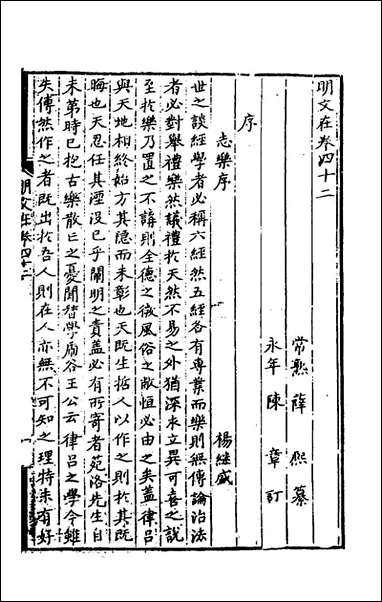 明文在卷四十二
常熟薛熙纂
永年陳章訂
序
志樂序
楊繼盛
世之談經學者必稱六經然五經各有專業而樂則無傳論治法
者必對舉禮樂然議禮於天然不易之外猶深求立異可喜之說
至於樂乃置之不講則全德之微風俗之敝恒必由之矣蓋律呂
與天地相終始方其隱而未彰也天既生哲人以作之則於其既
晦也天忍任其湮沒已乎闡明之責蓋必有所寄者苑洛先生自
未第時已抱古樂散亡之憂聞督學虎谷王公云律呂之學今雖
失傳然作之者既出於吾人則在人亦無不可知之理特未有好
明文在卷四十二